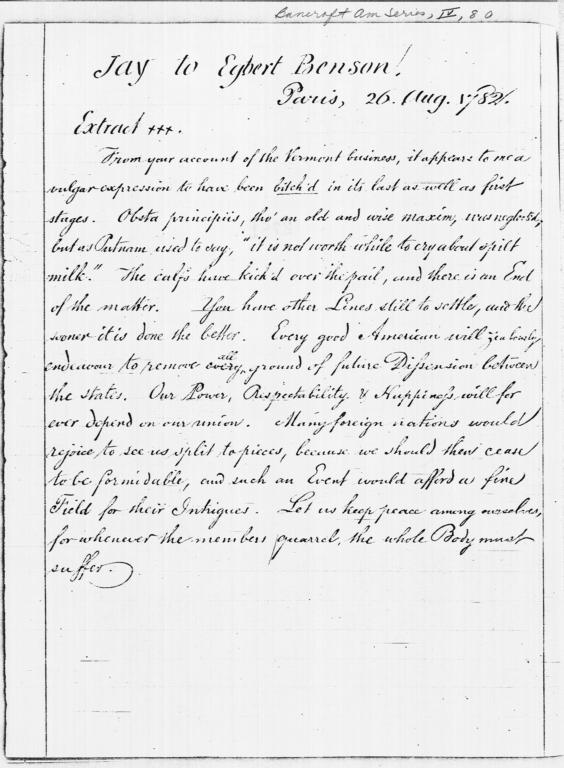 Bancroft Am Series, IV, 80
Jay to Egbert Benson.
Paris, 26. Aug. 1782.
Extract +++.
From your account of the Vermont business, it appears to me a
vulgar expression to have been bitch'd in its last as well as first
stages. Obsta principiis, tho' an old and wise maxim, was neglected;
but as Putnam used to say, "it is not worth while to cry about spilt
milk." The calfs have kick'd over the pail, and there is an End
of the matter. You have other Lines still to settle, and the
sooner it is done the better. Every good American will zealously
endeavour to remove every all ground of future Dissension between
the states. Our Power, Respectability & Happiness will for
ever depend on our union. Many foreign nations would
rejoice to see us split to pieces, because we should then cease
to be formidable, and such an Event would afford a fine
Field for their Intrigues. Let us keep peace among ourselves,
for whenever the members quarrel, the whole Body must
suffer.